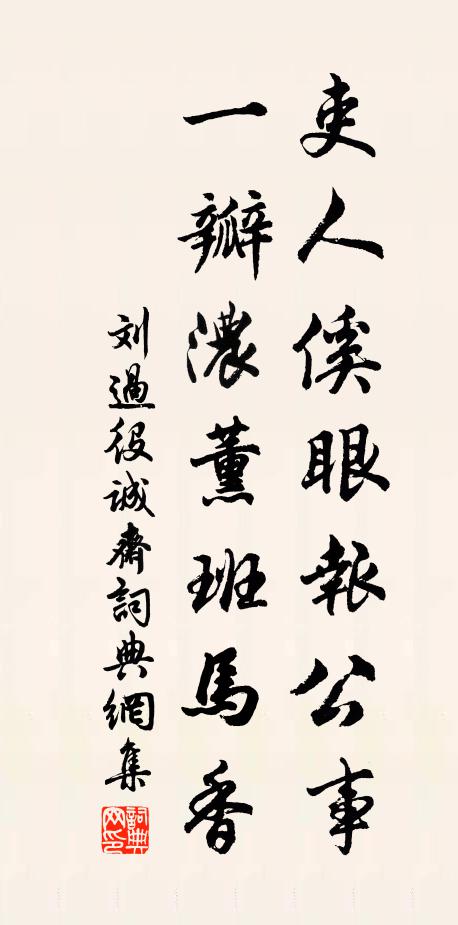 吏人傒眼報公事
一瓣濃薰班馬香
刘過役誠齋詞典網集
詞典
网印